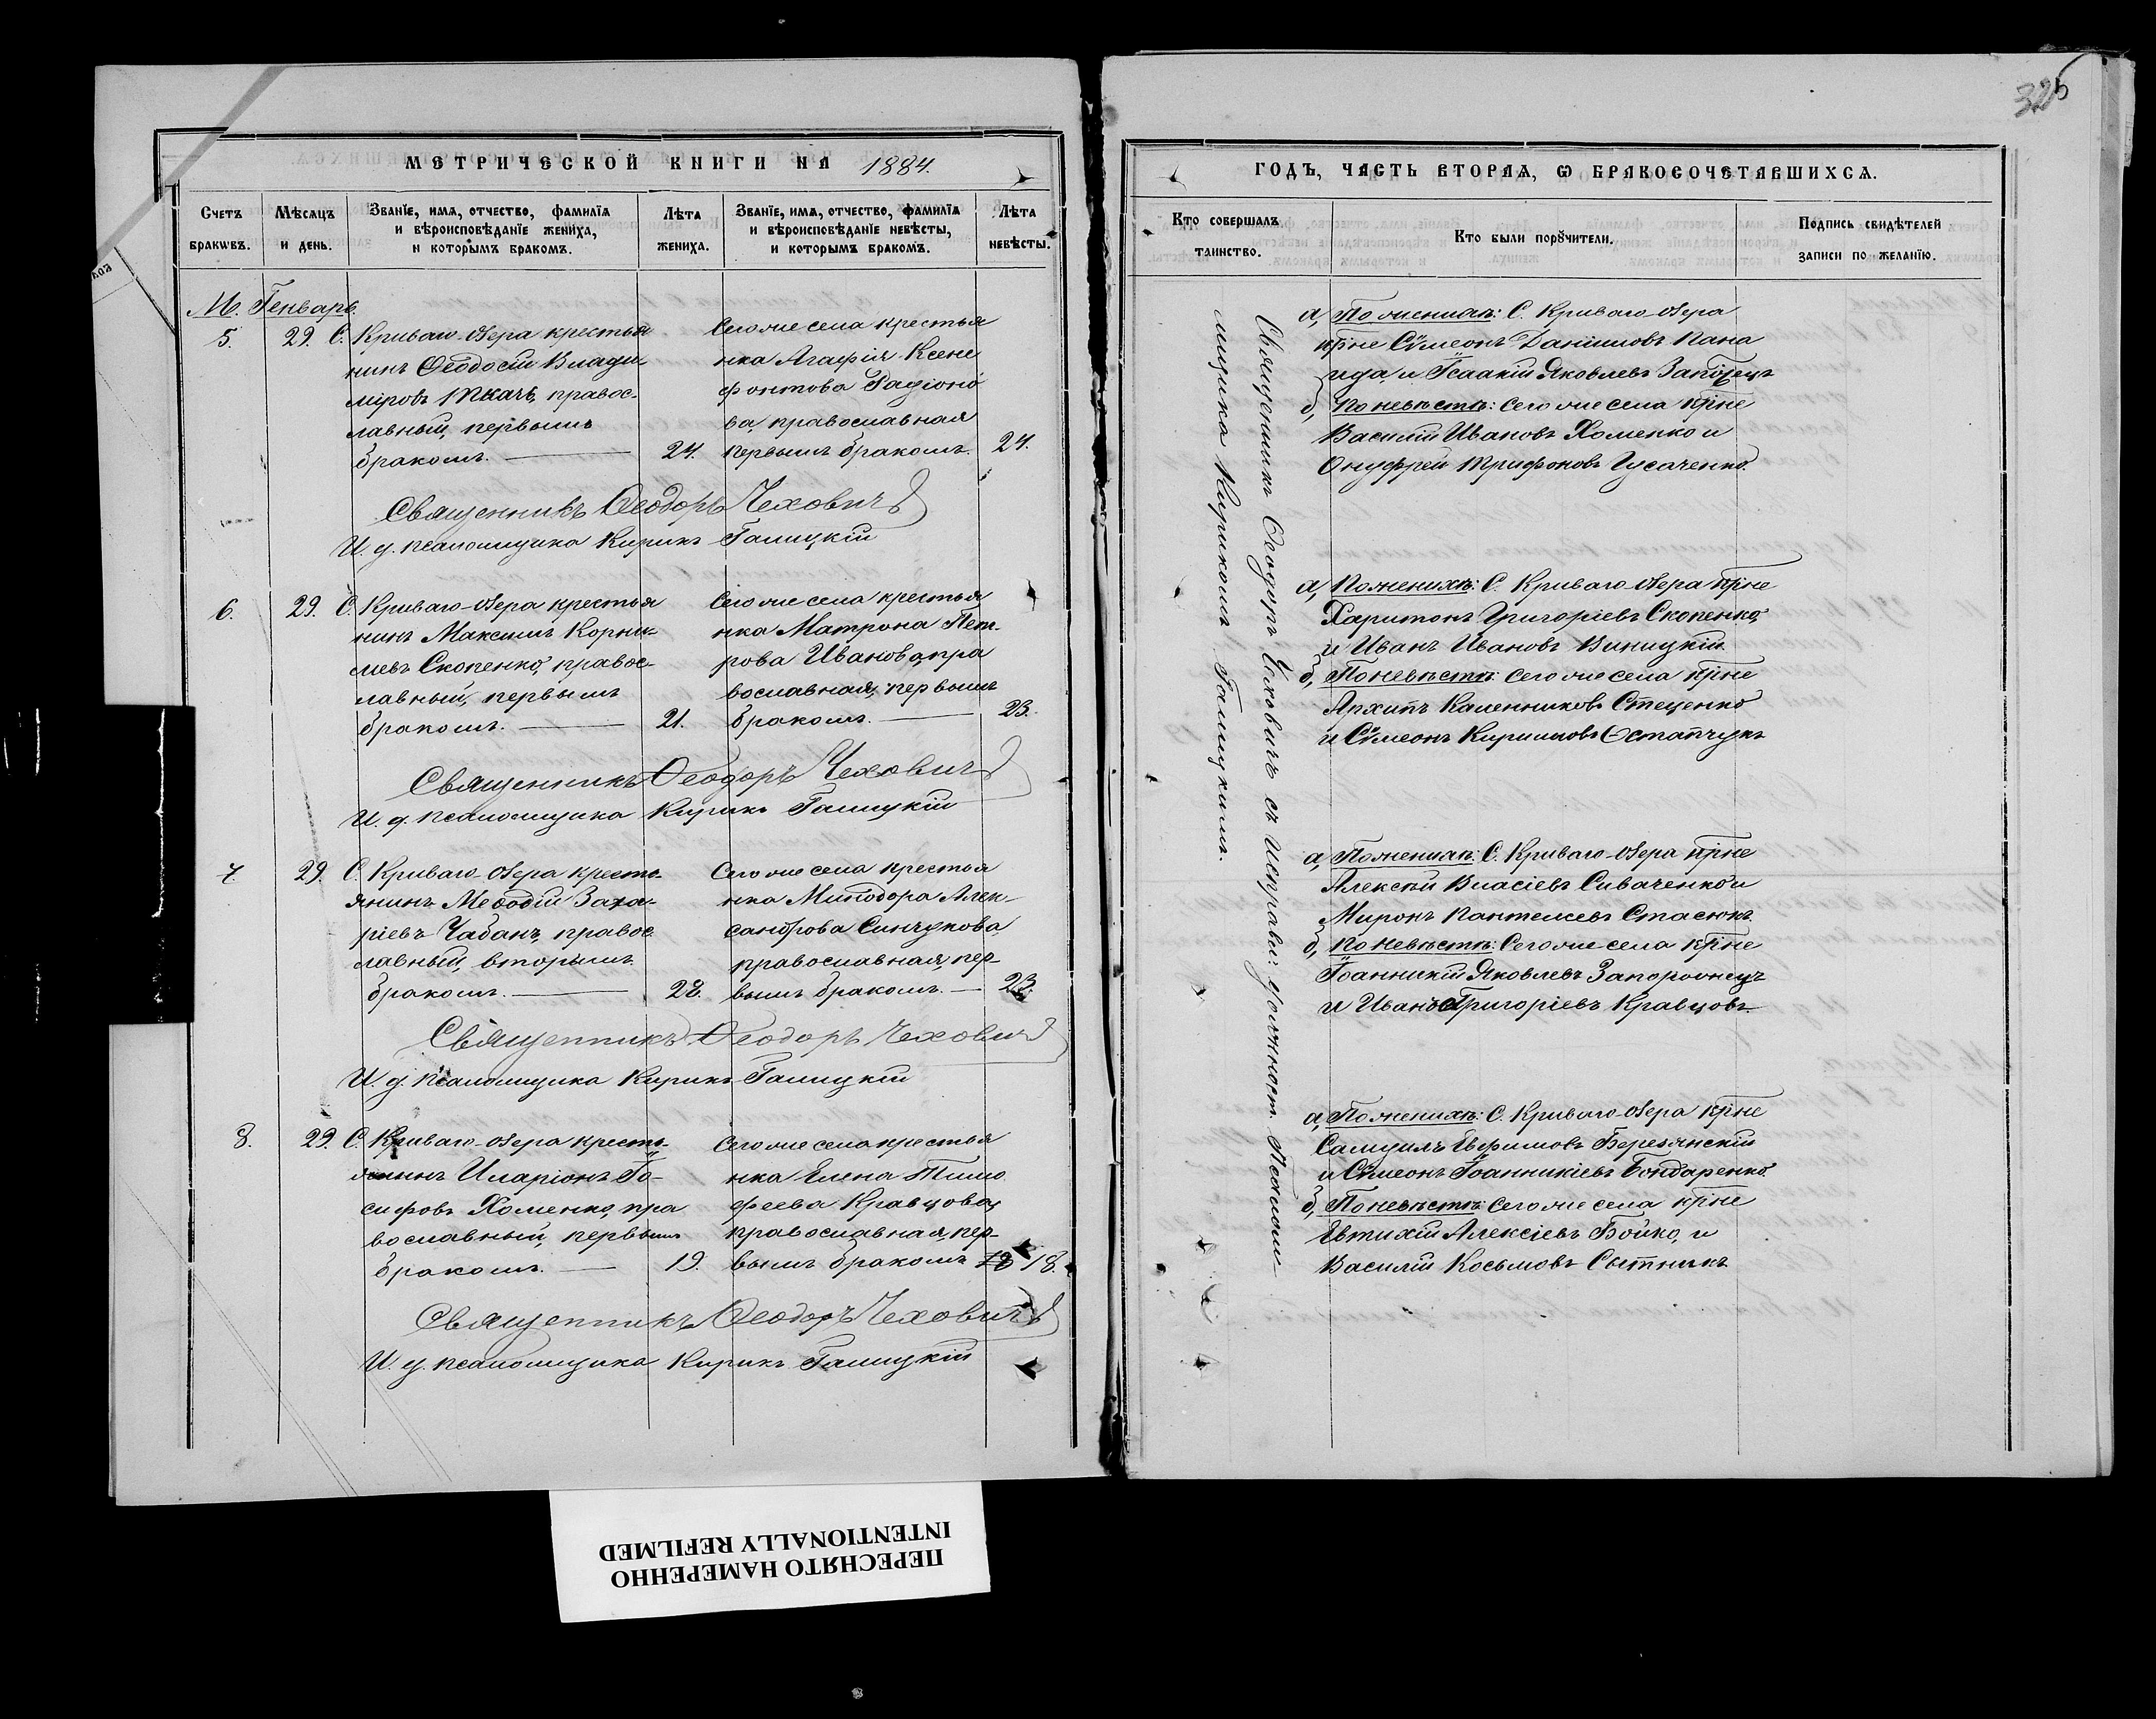 МЕТРИЧЕСКОЙ КНИГИ НА 1884.
Счетъ браковъ.
Мѣсяцъ и день.
Званіе, имя, отчество, фамилія и вѣроисповѣданіе жениха, и которымъ бракомъ.
Лѣта жениха.
Званіе, имя, отчество, фамилія и вѣроисповѣданіе невѣсты, и которымъ бракомъ.
Лѣта невѣсты.
М. Генварь.
5.
29.
С. Криваго-Озера крестья
нинъ Ѳеодосій Влади
міровъ Ткачъ, правос-
лавный, первымъ
бракомъ.
24.
Сего же села крестья
нка Агафія Ксено
фонтова Радіоно
ва, православная
первымъ бракомъ.
24.
Священникъ Ѳеодоръ Чеховичъ
И. д. псаломщика Кирикъ Галицкій
6.
29.
С. Криваго-Озера крестья
нинъ Максимъ Корни-
лиевъ Скопенко, правос-
лавный, первымъ
бракомъ.
21.
Сего же села крестья
нка Матрона Пет-
рова Иванова, пра
вославная, первымъ
бракомъ.
23.
Священникъ Ѳеодоръ Чеховичъ
И. д. псаломщика Кирикъ Галицкій
7.
29.
С. Криваго-Озера кресть-
янинъ Меѳодій Заха-
ріевъ Чабанъ, правос
лавный, вторымъ
бракомъ.
28.
Сего же села крестья
нка Минодора Алек-
сандрова Синчукова,
православная, пер-
вымъ бракомъ.
23.
Священникъ Ѳеодоръ Чеховичъ
И. д. псаломщика Кирикъ Галицкій
8.
29.
С. Криваго-Озера кресть-
янинъ Иларіонъ Іо-
сифовъ Хоменко, пра
вославный, первымъ
бракомъ.
19.
Сего же села крестья
нка Елена Тимо
феева Кравцова,
православная, пер-
вымъ бракомъ
18.
Священникъ Ѳеодоръ Чеховичъ
И. д. псаломщика Кирикъ Галицкій
325
ГОДЪ, ЧАСТЬ ВТОРАЯ, Ѡ БРАКОСОЧЕТАВШИХСЯ.
Кто совершалъ таинство.
Кто были поручители.
Подпись свидѣтелей записи по желанію.
Священникъ Ѳеодоръ Чеховичъ съ исправл: должност. Псалом-
щика Кирикомъ Галицкимъ.
а, По женихѣ: С. Криваго-Озера
кр҃не Сѷмеонъ Даніиловъ Пана
ида, и Ісаакій Яковлевъ
б, По невѣстѣ: Сего же села кр҃не
Василій Ивановъ Хоменко и
Онуфрей Трифоновъ Гусаченко.
а, По женихѣ: С. Криваго-Озера кр҃не
Харитонъ Григоріевъ Скопенко,
и Иванъ Ивановъ Виницкій.
б, По невѣстѣ: Сего же села кр҃не
Архипъ Каленниковъ Стеценко
и Сѷмеонъ Кирилловъ Остапчукъ
а, По женихѣ: С. Криваго-Озера кр҃не
Алексѣй Власіевъ Сиваченко и
Миронъ Пантелиевъ Стасюкъ.
б, По невѣстѣ: Сего же села кр҃не
Іоанникій Яковлевъ Запорожнецъ
и Иванъ Григоріевъ Кравцовъ
а, По женихѣ: С. Криваго-Озера кр҃не
Самуилъ Евфимовъ Березянскій
и Сѷмеонъ Іоанникіевъ Бондаренко.
б, По невѣстѣ: Сего же села кр҃не
Евтихій Алексіевъ Бойко, и
Василій Косьмовъ Сытникъ
ПЕРЕСНЯТО НАМЕРЕННО
INTENTIONALLY REFILMED